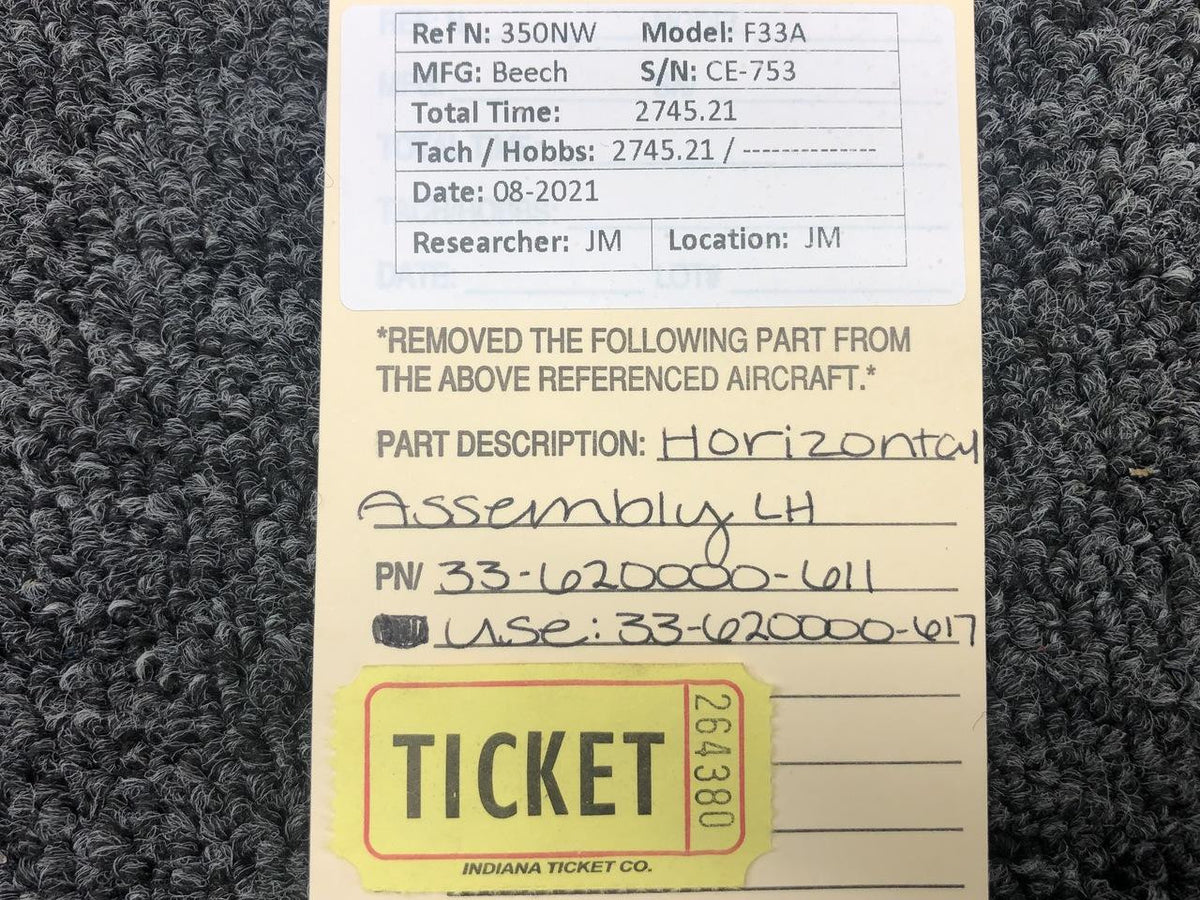 Ref N: 350NW Model: F33A
MFG: Beech S/N: CE-753
Total Time: 2745.21
Tach / Hobbs: 2745.21 / --------------
Date: 08-2021
Researcher: JM Location: JM
DATE: LOT#
*REMOVED THE FOLLOWING PART FROM
THE ABOVE REFERENCED AIRCRAFT.*
PART DESCRIPTION: Horizontal
Assembly LH
PN/ 33-620000-611
use: 33-620000-617
TICKET 264380
INDIANA TICKET CO.